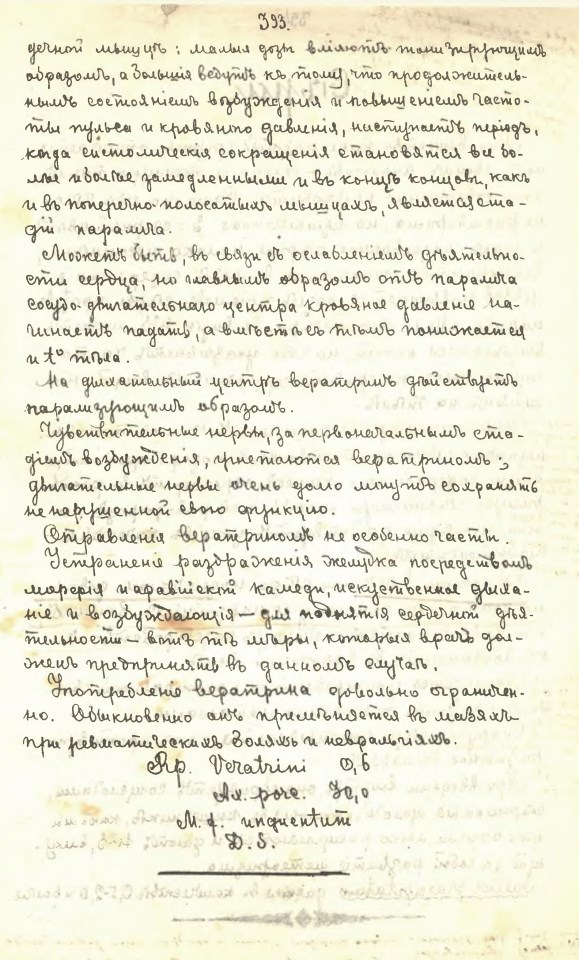 393.
дечной мышцѣ: малыя дозы вліяютъ тонизирующимъ
образомъ, а большія ведутъ къ тому, что продолжитель-
нымъ состояніемъ возбужденія и повышеніемъ часто-
ты пульса и кровяного давленія, наступаетъ періодъ,
когда систолическія сокращенія становятся все бо-
лѣе и болѣе замедленными и въ концѣ концовъ, какъ
и въ поперечно-полосатыхъ мышцахъ, является ста-
дій паралича.
Можетъ быть, въ связи съ ослабленіемъ дѣятельно-
сти сердца, но главнымъ образомъ отъ паралича
сосудо-двигательнаго центра кровяное давленіе на-
чинаетъ падать, а вмѣстѣ съ тѣмъ понижается
и t° тѣла.
На дыхательный центръ вератринъ дѣйствуетъ
парализующимъ образомъ.
Чувствительные нервы, за первоначальнымъ ста-
діемъ возбужденія, угнетаются вератриномъ;
двигательные нервы очень долго могутъ сохранять
ненарушенной свою функцію.
Отравленія вератриномъ не особенно часты.
Устраненіе раздраженія желудка посредствомъ
морфія и аравійской камеди, искуственное дыха-
ніе и возбуждающія — для поднятія сердечной дѣя-
тельности — вотъ тѣ мѣры, которыя врачъ дол-
женъ предпринять въ данномъ случаѣ.
Употребленіе вератрина довольно ограничен-
но. Обыкновенно онъ примѣняется въ мазяхъ
при ревматическихъ боляхъ и невралгіяхъ.
Rp. Veratrini 0,6
Ax. porc. 30,0
M. f. unguentum
D. S.